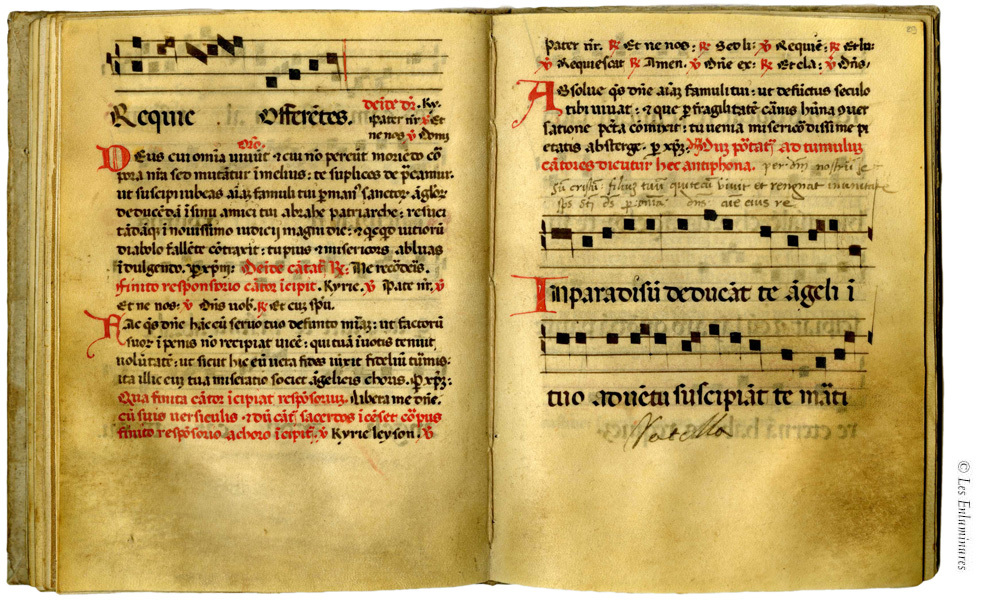 Requie Offerētes. deīte dr̄. Ky.
Pater nr̄ ℣ Et
ne nos ℣ Domī
Orō.
Deus cui om̄ia viuūt ⁊ cui nō pereūt moriēdo cō
pora nr̄a sed mutātur ī melius: te suplices dep̄camur.
ut suscipi iubeas aīaȝ famuli tui ꝑ man᷒ sanctoꝝ āgloꝝ
deducēdā ī sinu amici tui abrahe patriarche: resuci
tādāqȝ ī nouissimo iudicij magni die: ⁊ qcqd uitioꝝ
diabolo fallēte cōtraxit: tu pius ⁊ misericors abluas
īdulgendo. ꝑ xp̄m: Deīde cātat᷒ ℟: Ne recōdeīs.
finito responsorio cātor īcipit. Kyrie. ℣ Pate nr̄. ℣
Et ne nos: ℣ Dn̄s uob. ℟ Et cuȝ spū.
Fac qs dn̄e hāc cū seruo tuo defunto mīaȝ: ut factoꝝ
suoꝝ ī penis nō recipiat uicē: qui tuā ī uotis tenuit
volūtatē: ut sicut hic eū uera fides uixit fideliū tūmis:
ita illic euȝ tua miseratio societ āgelicis choris. ꝑ xp̄ȝ:
Qua finita cātor īcipiat respōsoriuȝ. Libera me dn̄e.
cū suis uersiculis ⁊ dū cāt᷒ sacerdos īcēset cōpus
finito respōsorio a choro īcipit᷒. ℣ Kyrie leyson. ℣
Pater nr̄. ℟ Et ne nos: ℟ Sed li: ℣ Requiē: ℟ Et lu:
℣ Requiescat ℟ Amen. ℣ Dn̄e ex: ℟ Et cla: ℣ Dn̄s:
Absolue qs dn̄e aīaȝ famuli tui: ut defūctus seculo
tibi uiuat: ⁊ que ꝑ fragilitatē carnis hūna ꝯuer
satione pctā cōmixit: tu uenia misericōdissime pi
etatis absterge. ꝑ xp̄ȝ. Duȝ pōtat᷒ ad tumuluȝ
cātores dicūtur hec antiphona. per dm̄ nostrū ie
sū cristū filium tuū qui tecū vivit et rengnat in unitate
sps sti ds per omnia dns
In paradisū deducāt te āgeli ī
tuo aduētu suscipiāt te māti